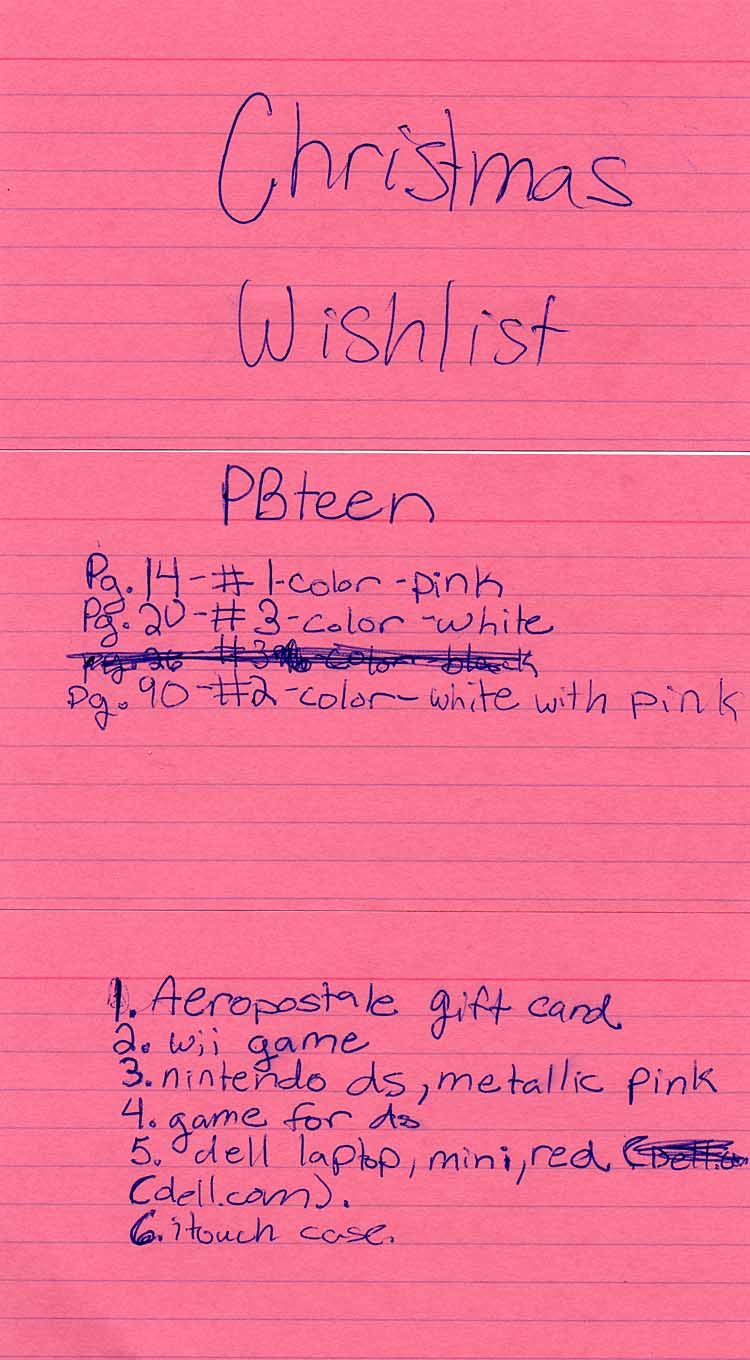 Christmas
Wishlist
PBteen
Pg. 14-# 1-color-pink
Pg. 20-# 3-color-white
pg. 90-#2-color-white with pink
1. Aeropostale gift card
2. wii game
3. nintendo ds, metallic pink
4. game for ds
5. dell laptop, mini, red
(dell.com).
6. itouch case.